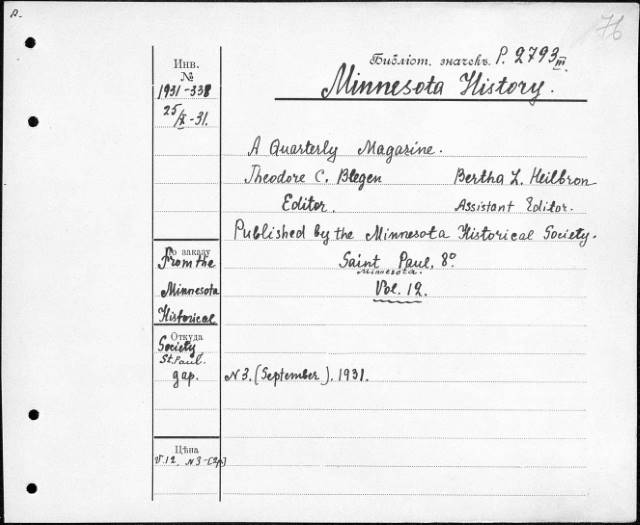 A.
76
Инв.
№
1931-338
25/X-31.
Библіот. значекъ. P. 2793 III.
Minnesota History.
A Quarterly Magazine.
Theodore C. Blegen Bertha L. Heilbron
Editor. Assistant Editor.
Published by the Minnesota Historical Society.
Saint Paul, 8º
Minnesota.
Vol. 12.
По заказу
From the
Minnesota
Historical
Откуда
Society
St. Paul.
gap.
N3. (September). 1931.
Цѣна
V.12. N3-(2p)